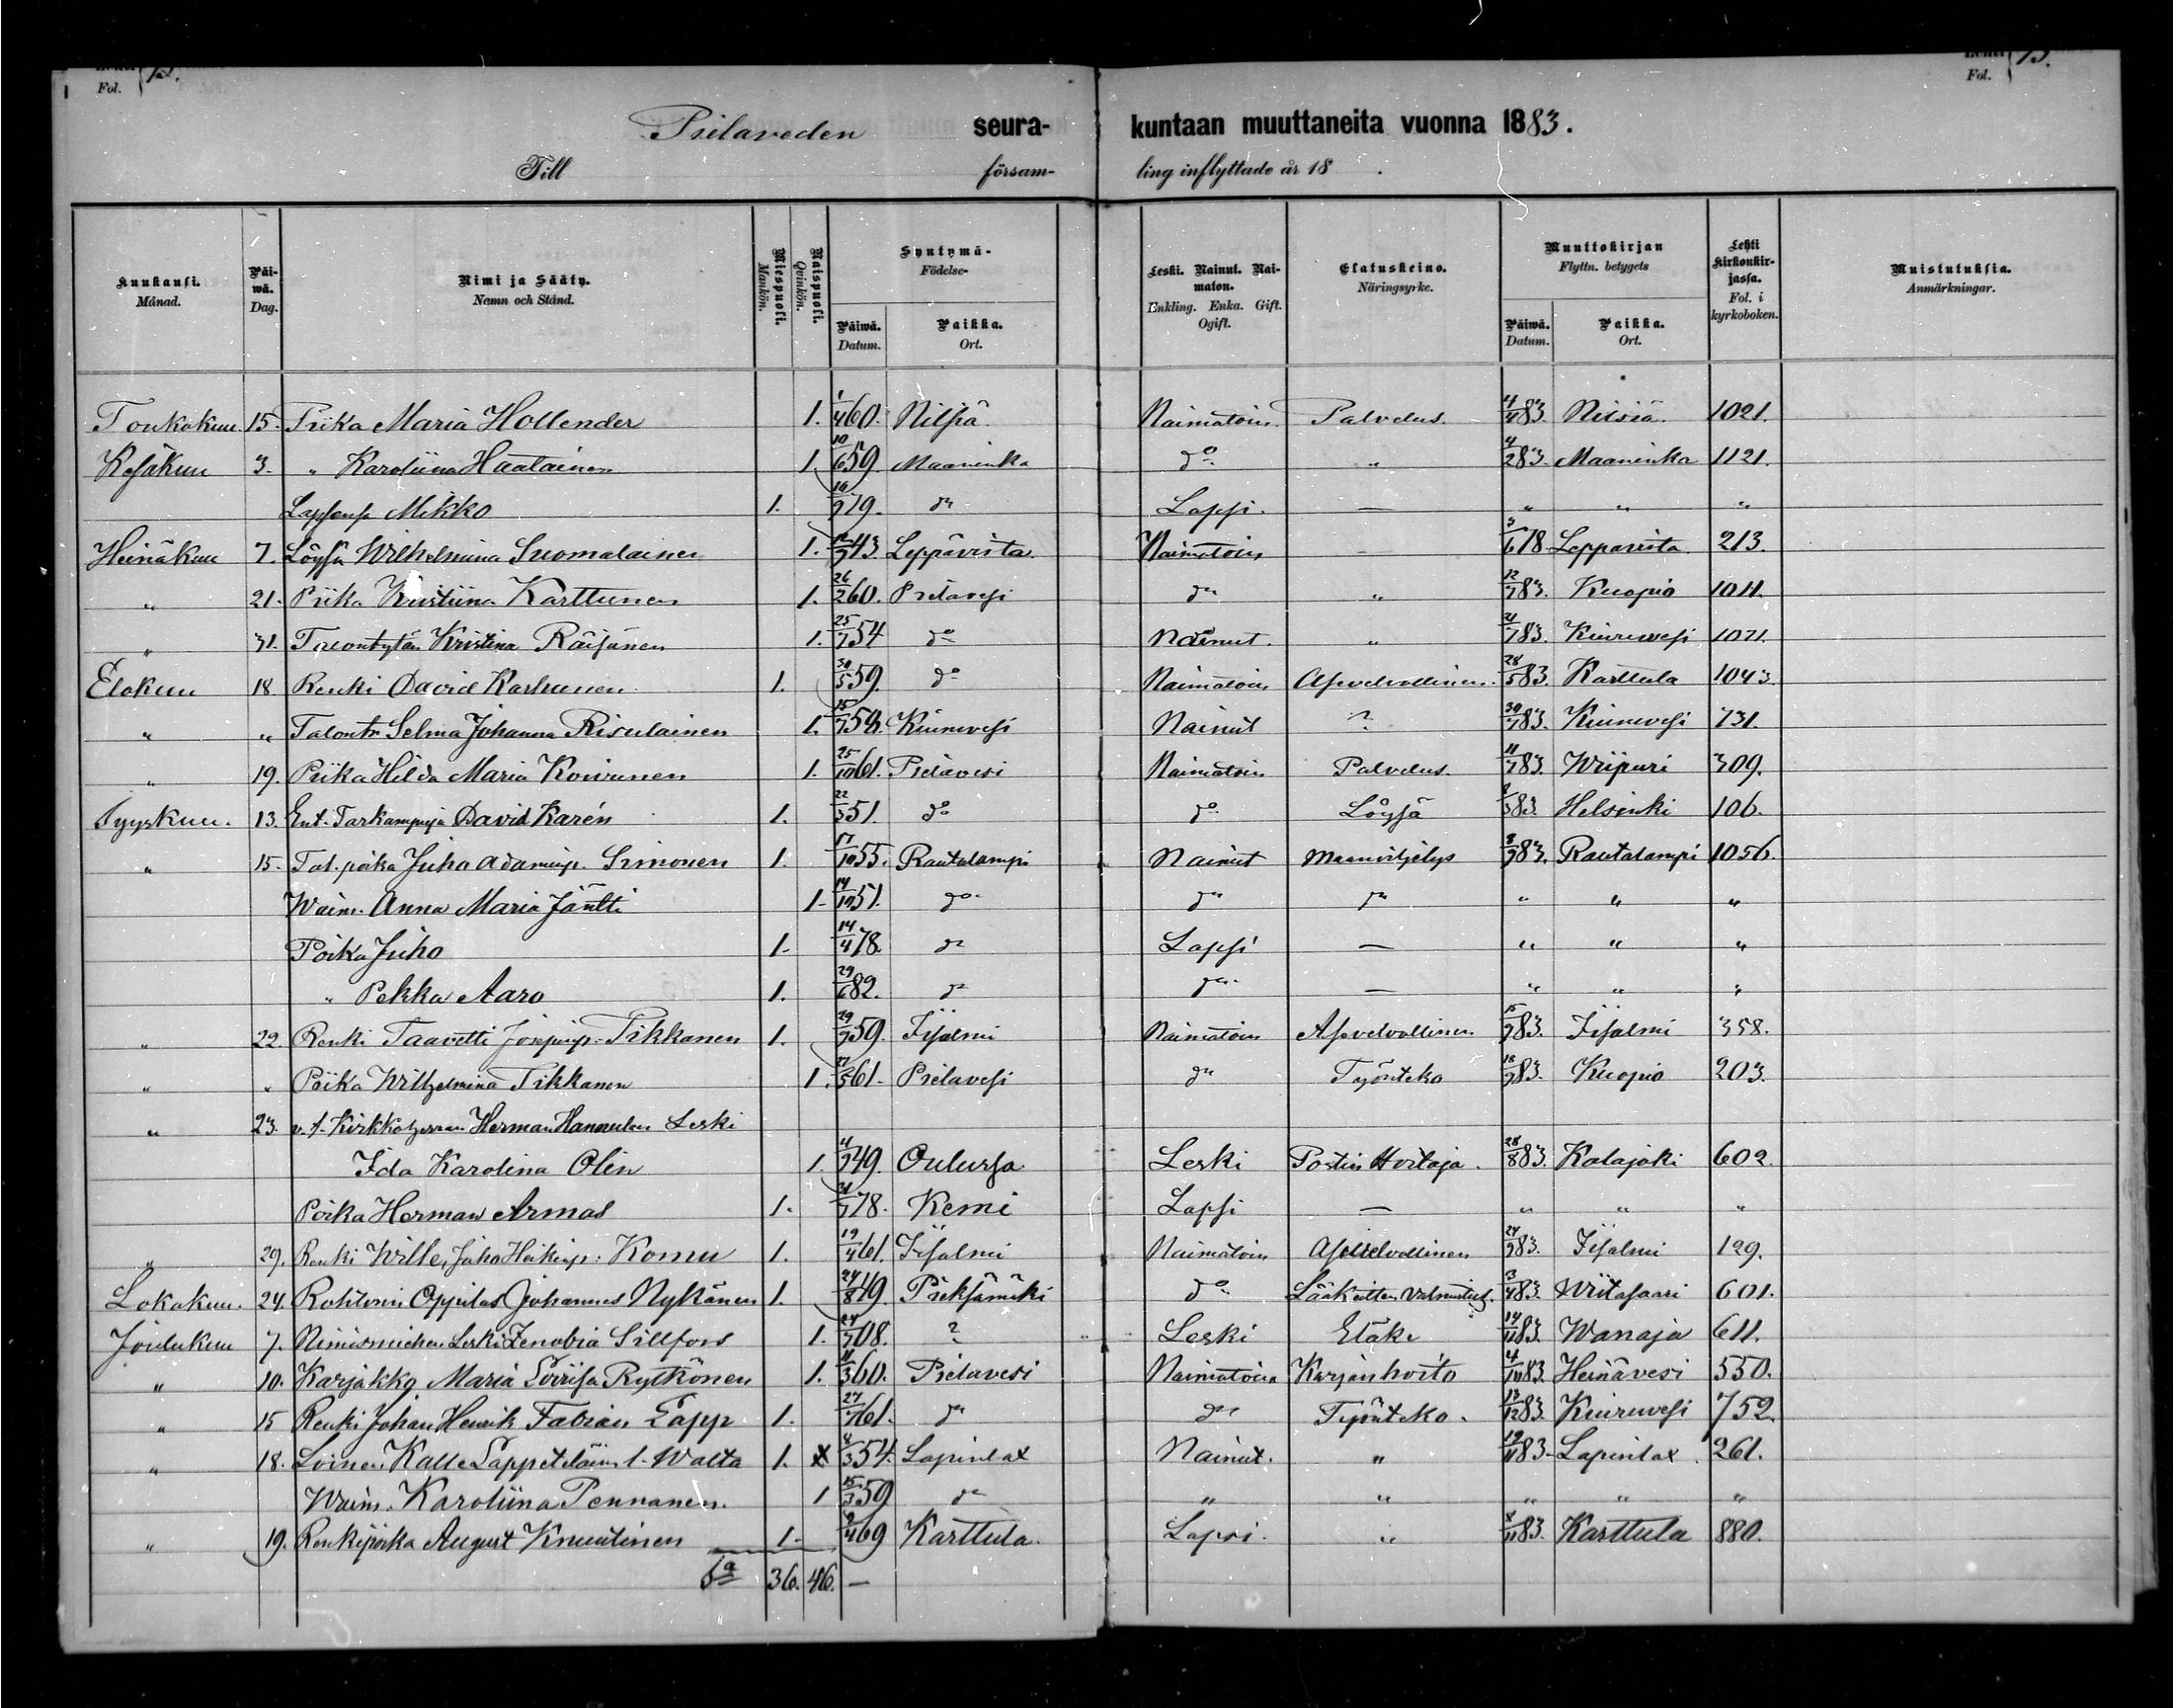 Fol. Fol.
Pielaveden seura- kuntaan muuttaneita vuonna 1883.
Till församling inflyttade år 18 .
Kuukausi. Månad. Päiwä. Dag. Nimi ja Sääty. Namn och Stånd. Miespuoli. Mankön. Naispuoli. Qvinkön. Syntymä- Födelse- Päiwä. Datum. Paikka. Ort. Leski. Nainut. Naimaton. Enkling. Enka. Gift. Ogift. Elatuskeino. Näringsyrke. Muuttokirjan Flyttn. betygets Päiwä. Datum. Paikka. Ort. Lehti Kirkonkirjassa. Fol. i kyrkoboken. Muistutuksia. Anmärkningar.
Toukokuu. 15. Piika Maria Hollender 1. 1/4 60. Nilsiä Naimatoin Palvelus. 4/4 83. Nilsiä 1021.
Kesäkuu 3. " Karoliina Haatainen 1. 10/6 59 Maaninka do " 4/2 83. Maaninka 1121.
Lapsensa Mikko 1. 16/9 79. do Lapsi. — " " "
Heinäkuu 7. Löysä Wilhelmina Suomalainen 1. 12/9 43. Leppävirta Naimatoin — 3/6 78. Leppävirta 213.
" 21. Piika Kristiina Karttunen 1. 26/2 60. Pielavesi do " 12/7 83. Kuopio 1011.
" 31. Talontytär Kristina Räisänen 1. 25/7 54 do Nainut. " 21/7 83. Kiuruwesi 1071.
Elokuu 18 Renki David Karhunen 1. 30/5 59. do Naimatoin Asevelvollinen. 28/5 83. Karttula 1043.
" " Talontr Selma Johanna Risulainen 1. 15/7 58. Kiuruvesi Nainut ? 30/7 83. Kiuruvesi 731.
" 19. Piika Hilda Maria Koivunen 1. 25/10 61. Pielavesi Naimatoin Palvelus. 11/7 83. Wiipuri 309.
Syyskuu. 13. Ent. Tarkampuja David Karén 1. 22/3 51. do do Löysä 8/3 83. Helsinki 106.
" 15. Tal. poika Juho Adaminp. Simonen 1. 17/10 55. Rautalampi Nainut Maanviljelys 8/9 83. Rautalampi 1056.
Waim. Anna Maria Jäntti 1. 14/10 51. do do do " " "
Poika Juho 1. 14/4 78. do Lapsi — " " "
" Pekka Aaro 1. 29/6 82. do do — " " "
" 22. Renki Taavetti Josepinp. Tikkanen 1. 29/9 59. Iisalmi Naimatoin Asevelvollinen 15/9 83. Iisalmi 358.
" " Piika Wilhelmina Tikkanen 1. 27/5 61. Pielavesi do Työnteko 18/9 83. Kuopio 203.
" 23. v. t. Kirkkoherran Herman Hannulan Leski
Ida Karolina Olin 1. 4/9 49. Oulussa Leski Postin Hoitaja. 28/8 83. Kalajoki 602.
Poika Herman Armas 1. 31/7 78. Kemi Lapsi — " " "
" 29. Renki Wille, Juho Heikinp. Komu 1. 19/4 61. Iisalmi Naimatoin Asevelvollinen 24/9 83. Iisalmi 129.
Lokakuu. 24. Rohtorin Oppilas Johannes Nykänen 1. 24/8 49. Pieksämäki do Lääkeitten valmistus. 3/4 83. Wiitasaari 601.
Joulukuu 7. Nimismiehen Leski Zenobia Sillfors 1. 24/7 08. ? Leski Eläke 14/11 83. Wanaja 611.
" 10. Karjakko Maria Lovisa Rytkönen 1. 11/3 60. Pielavesi Naimatoin Karjanhoito 4/10 83. Heinävesi 550.
" 15 Renki Johan Henrik Fabian Lapp 1. 27/7 61. do do Työnteko. 13/12 83. Kiuruvesi 752.
" 18. Loinen Kalle Lappeteläin l. Walta 1. x 8/3 54. Lapinlax Nainut. " 19/11 83. Lapinlax 261.
Waim. Karoliina Pennanen. 1 15/3 59 do " " " " "
" 19. Renkipoika August Knuutinen 1. 2/4 69 Karttula. Lapsi. " 8/11 83. Karttula 880.
Sa 36. 46. —